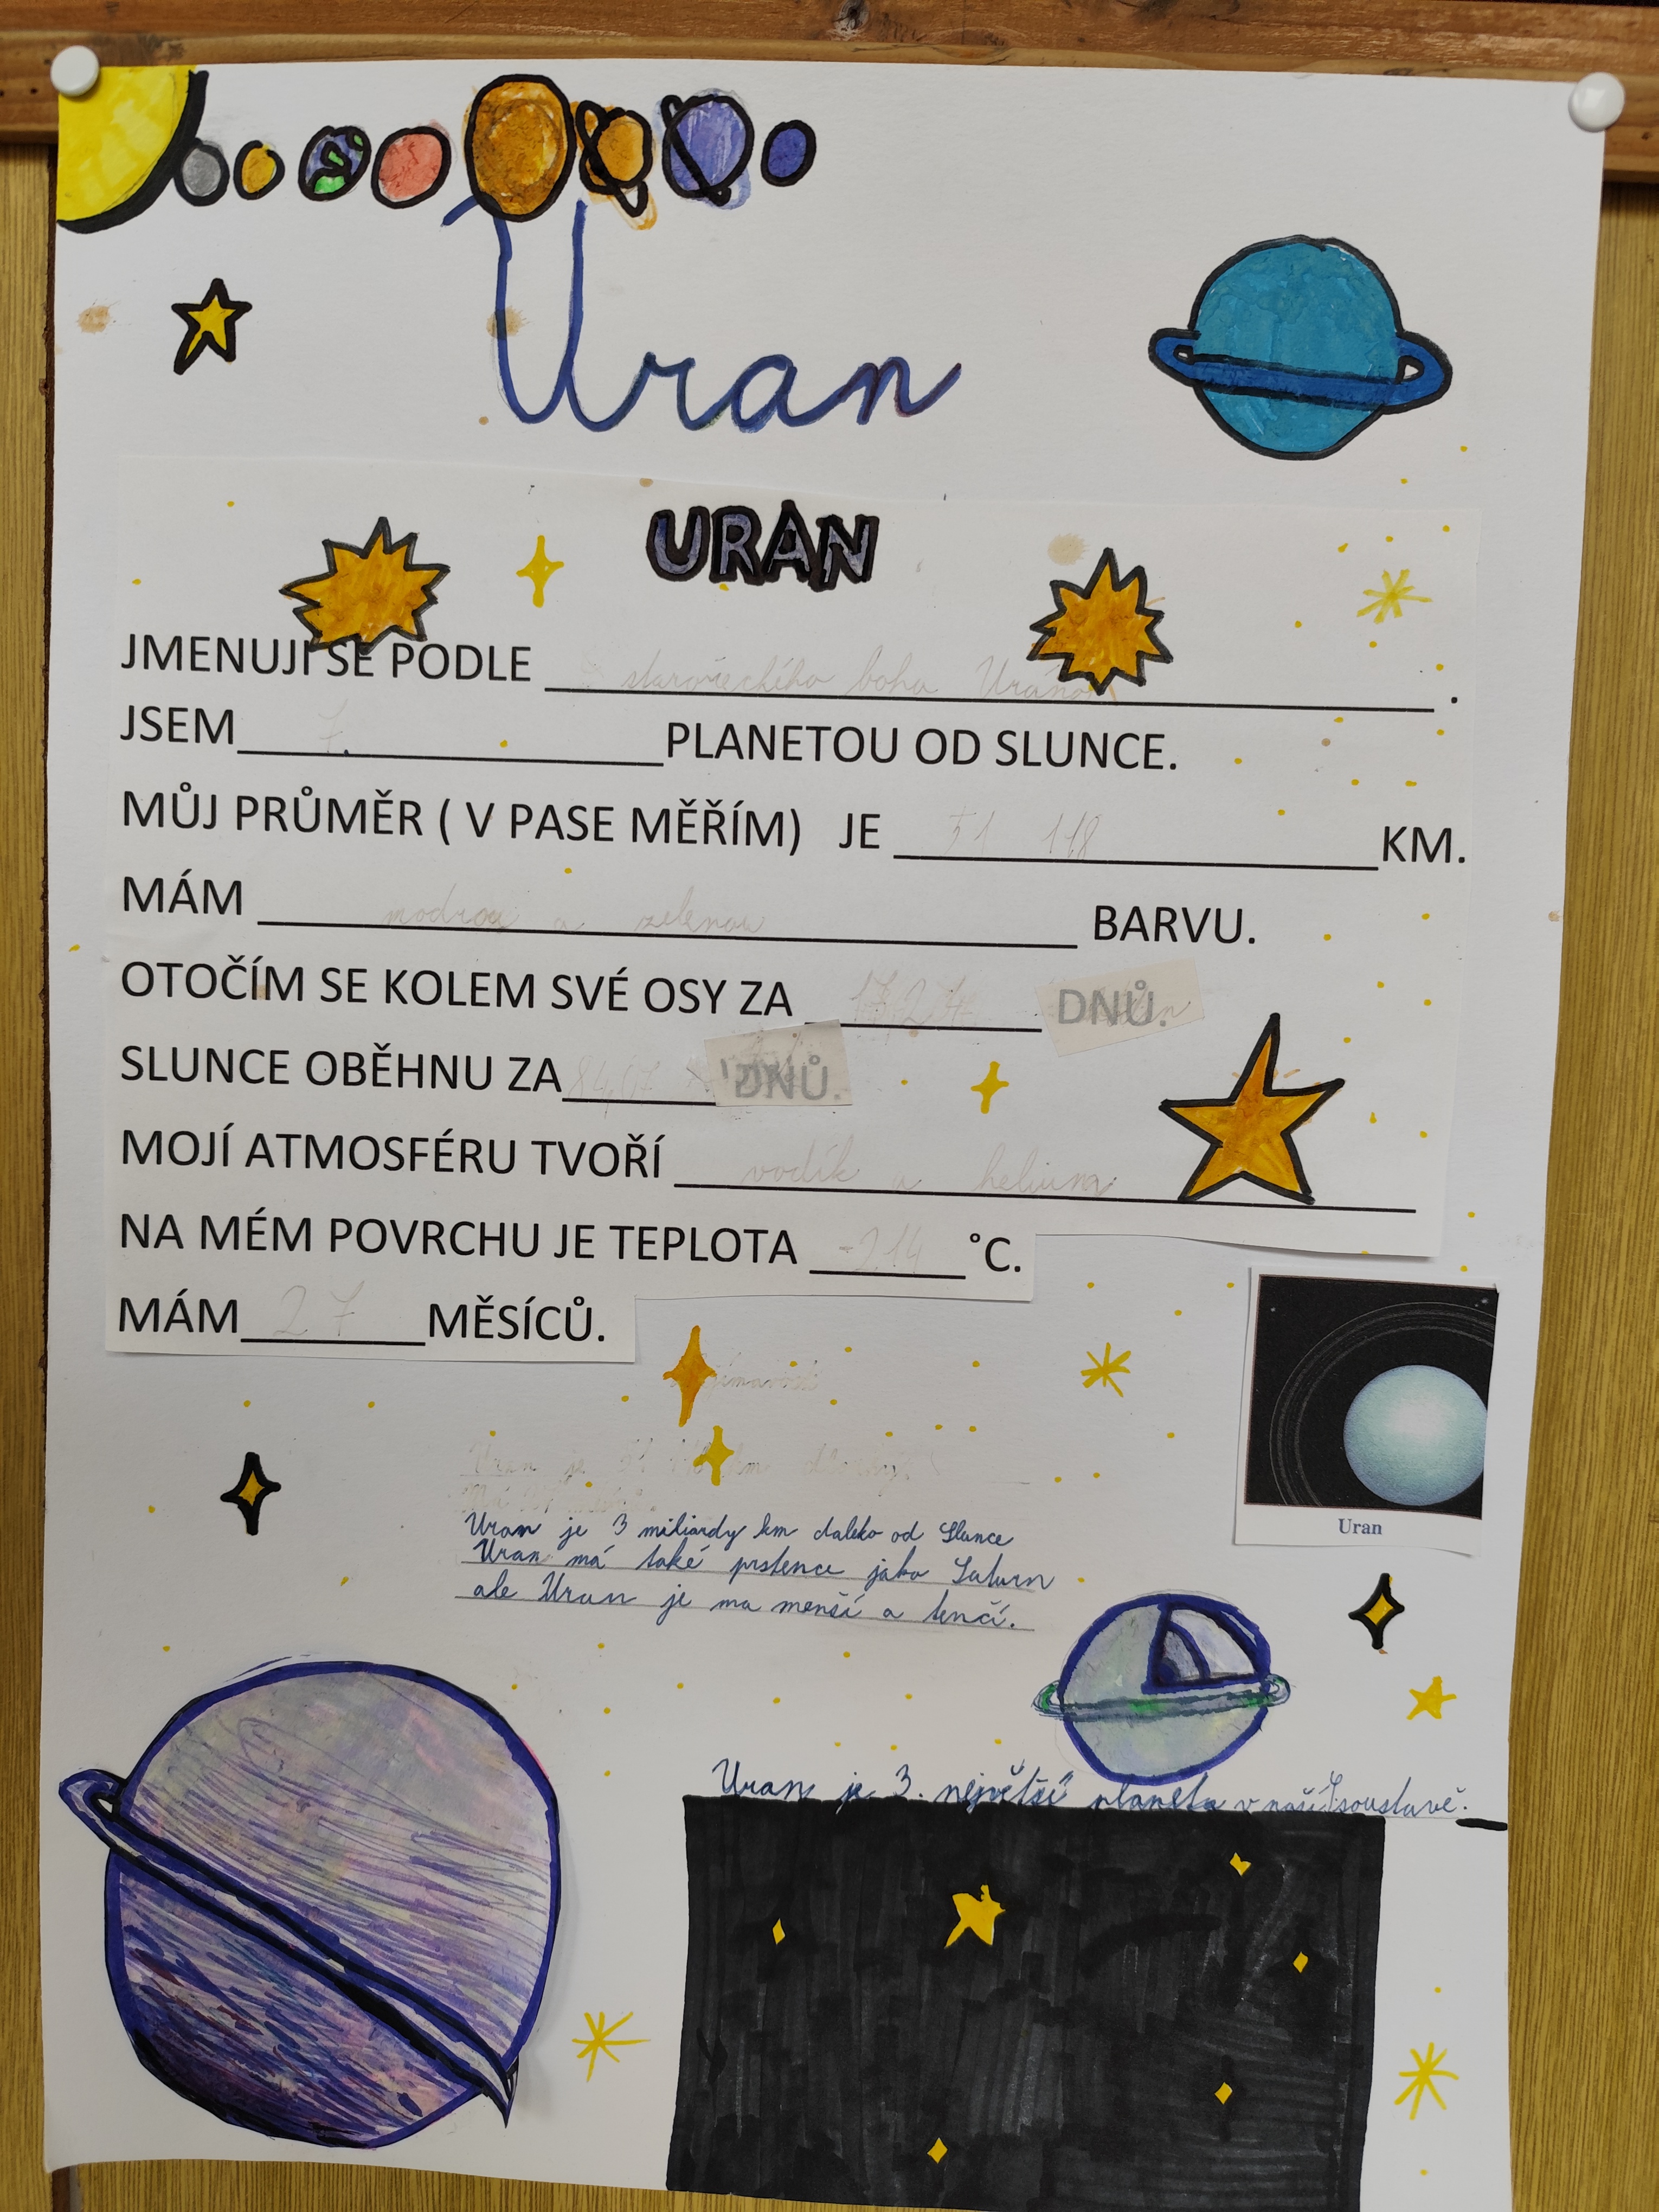 Uran
URAN
JMENUJI SE PODLE starořeckého boha Urána.
JSEM 7. PLANETOU OD SLUNCE.
MŮJ PRŮMĚR ( V PASE MĚŘÍM) JE 51 118 KM.
MÁM modrou a zelenou BARVU.
OTOČÍM SE KOLEM SVÉ OSY ZA 17,24 DNŮ.
SLUNCE OBĚHNU ZA 84,07 DNŮ.
MOJÍ ATMOSFÉRU TVOŘÍ vodík a helium
NA MÉM POVRCHU JE TEPLOTA -214 °C.
MÁM 27 MĚSÍCŮ.
Uran je km
Uran je 3 miliardy km daleko od Slunce
Uran má také prstence jako Saturn
ale Uran je ma menší a tenčí.
Uran
Uran je 3. největší planeta v naší soustavě.